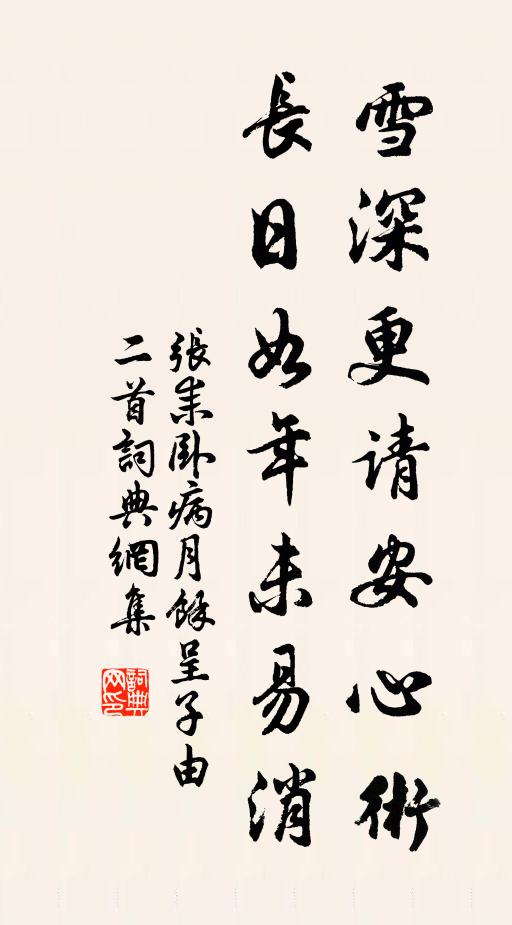 雪深更请安心術
長日如年未易消
張耒卧病月餘呈子由
二首詞典網集
詞典网印